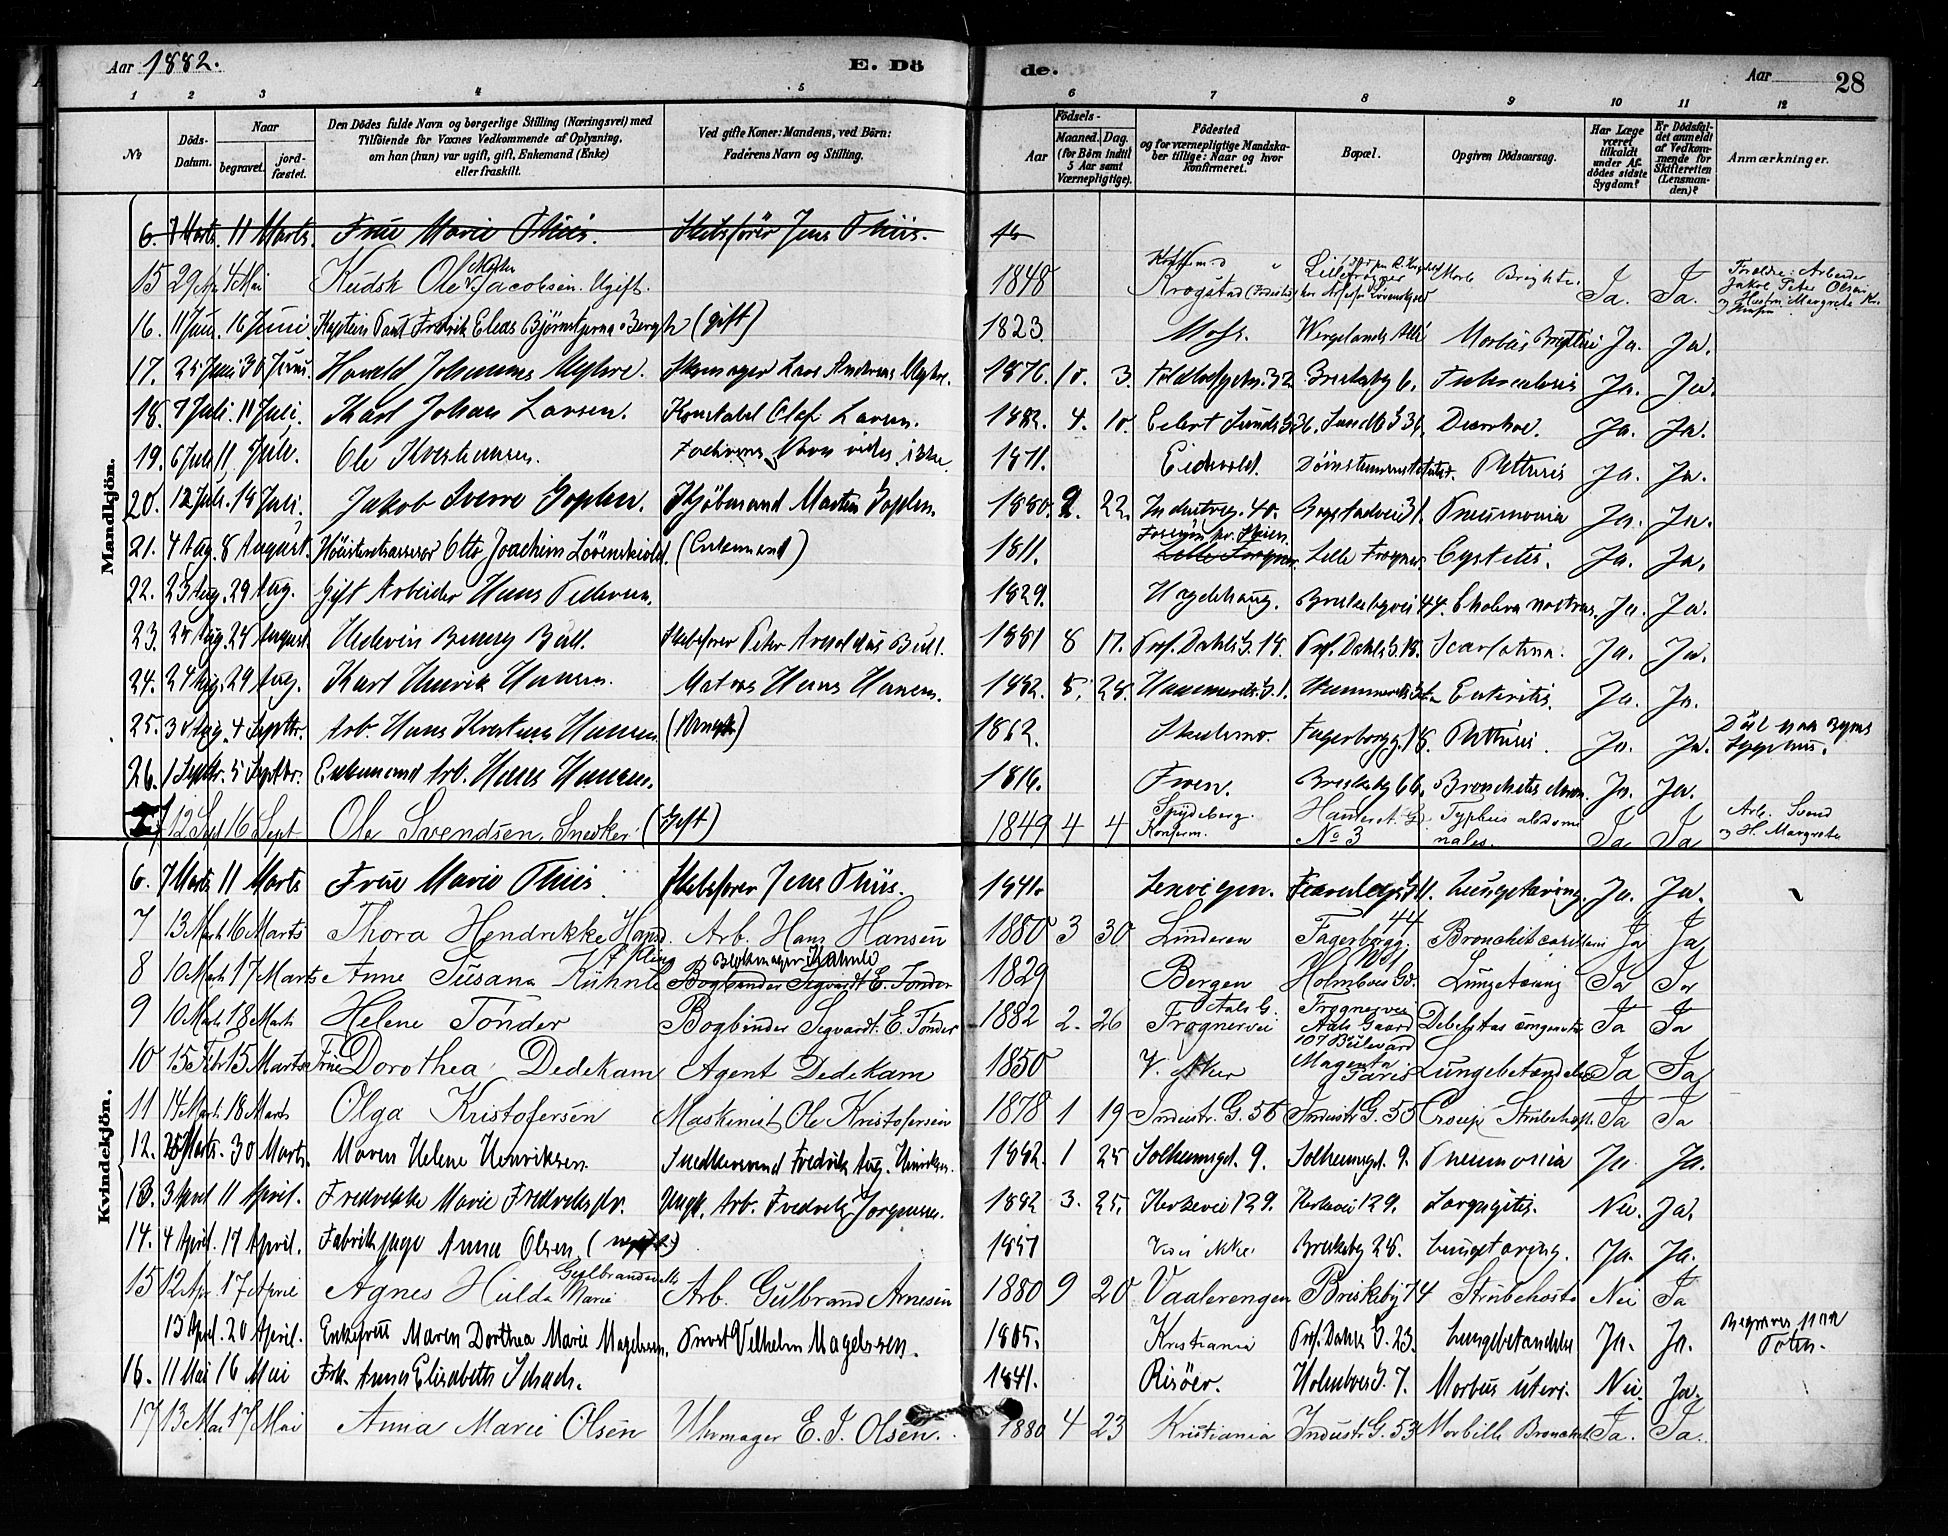 Aar 1882.
E. Dö
de.
Aar
28
1 2 3 4 5 6 7 8 9 10 11 12
No
Döds-
Datum.
Naar
begravet.
jord-
fæstet.
Den Dödes fulde Navn og borgerlige Stilling (Næringsvei) med
Tilföiende for Voxnes Vedkommende af Oplysning,
om han (hun) var ugift, gift, Enkemand (Enke)
eller fraskilt.
Ved gifte Koner: Mandens, ved Börn:
Faderens Navn og Stilling.
Födsels-
Aar
Maaned.
Dag.
(for Börn indtil
5 Aar samt
Værnepligtige).
Födested
og for værnepligtige Mandska-
ber tillige: Naar og hvor
konfirmeret.
Bopæl.
Opgiven Dödsaarsag.
Har Læge
været
tilkaldt
under Af-
dödes sidste
Sygdom?
Er Dödsfal-
det anmeldt
af Vedkom-
mende for
Skifteretten
(Lensman-
den)?
Anmærkninger.
Mandkjön.
6. 7 Marts. 11 Marts. Frue Marie Thiis. Skibsförer Jens Thiis.
15 29 Ap 4 Mai Kudsk Ole Jacobsen. Ugift. 1848 Krogstad Ja. Ja. Forældre: Arbeider
Jakob Peter Olsen
16. 11 Juni. 16 Juni. Kaptein Paul Fredrik Elias Björnstjerna Bergh (gift) 1823. Moss. Wergelands Allé Morbus Brightii Ja. Ja.
17. 25 Juni 30 Juni. Harald Johannes Myhre. Skomager Lars Andreas Myhre. 1876. 10. 3. Briskeby 6. Tuberculosis Ja. Ja.
18. 7 Juli. 11 Juli. Karl Johan Larsen. Konstabel Olaf Larsen. 1882. 4. 10. Eilert Sunds G 36. Sundts G 36. Diarrhoe. Ja. Ja.
19. 6 Juli 11 Juli. Ole Kristiansen. Faderens Navn vides ikke. 1871. Eidsvold. Döinstummeinstitutet. Phthisis Ja. Ja.
20. 12 Juli. 18 Juli. Jakob Sverre Goplen. Kjöbmand Martin Goplen. 1880. 2. 22. Industrig. 40. Bogstadvei 31. Pneumonia Ja. Ja.
21. 4 Aug. 8 August. Höiesteretsassessor Otto Joachim Lövenskiold. (Enkemand) 1811. Fossum pr. Skien. Lille Frogner. Lille Frogner. Cystitis. Ja. Ja.
22. 23 Aug. 29 Aug. Gift Arbeider Hans Pedersen. 1829. Hægdehaug. Briskebyvei 44. Cholera nostras. Ja. Ja.
23. 24 Aug. 28 August. Bull. Skibsförer Peter Arnoldus Bull. 1881 8 17. Prof. Dahls G. 18. Prof. Dahls G. 18. Scarlatina. Ja. Ja.
24. 24 Aug. 29 Aug. Karl Henrik Hansen. Matros Hans Hansen. 1882. 5. 28. Hammersts G. 1. Enteritis. Ja. Ja.
25. 30 Aug. 4 Septbr. Arb. Hans Kristian Hansen. 1862. Fagerborgg. 18. Phthisis. Ja. Ja.
26. 1 Septbr. 5 Septbr. Enkemand Arb. Hans Hansen. 1816. Froen. Briskeby 66. Bronchitis chron. Ja. Ja.
12 Sept 16 Sept Ole Svendsen. Snedker (Gift) 1849 4 4 Spydeberg.
Konfirm. No 3 Typhus abdomi
nales. Ja Ja Arb. Svend
og H. Margrete
Kvindekjön.
6. 7 Marts 11 Marts Frue Marie Thiis Skibsförer Jens Thiis. 1841. Lungetæring. Ja. Ja.
7 13 Marts 16 Marts Thora Hendrikke Hansd. Arb. Hans Hansen 1880 3 30 Linderen Fagerborgg. 44 Ja Ja
8 10 Marts 17 Marts Anne Susana Kühnle Blokmager Kühnle Bogbinder Sigvardt E. Tönder 1829 Bergen Holmboes Gd. Lungetæring Ja Ja
9 10 Marts 18 Marts Helene Tönder Bogbinder Sigvardt E. Tönder 1882 2. 26 Aals G. Frognervei Frognervei
Aals Gaard Debilitas congenita Ja Ja
10 15 Febr 15 Marts Frue Dorothea Dedekam Agent Dedekam 1850 V. Aker 107 Bulevard
Magenta
Paris Lungebetændelse Ja Ja
11 14 Marts 18 Marts Olga Kristofersen Maskinist Ole Kristofersen 1878 1 19 Industr. G. 55 Industr G. 55 Croup Strubehoste Ja Ja
12. 25 Marts. 30 Marts. Maren Helene Henriksen. Snedkersvend Fredrik Aug. Henriksen. 1882. 1 25 Solheimsgt. 9. Solheimsgt. 9. Pneumonia Ja. Ja.
13. 3 April 11 April. Fredrikke Marie Fredriksdtr. Ungk. Arb. Fredrik Jörgensen. 1882 3. 25. Kirkevei 129. Kirkevei 129. Laryngitis. Nei. Ja.
14. 4 April. 17 April. Fabrikpige Anna Olsen (ugift) 1851 Vides ikke. Briskeby 28. Lungetæring. Ja. Ja.
15 12 Apr 17 April Agnes Hulda Marie Gulbrandsdtr Arb. Gulbrand Arnesen 1880 9 20 Vaalerengen Briskeby 74 Strubehoste Nei Ja
13 April. 20 April. Enkefrue Maren Dorthea Marie Magelssen. Provst Vilhelm Magelssen. 1805. Kristiania Prof. Dahls G. 23. Lungebetændelse Ja. Ja. Begraves paa
Toten.
16. 11 Mai 16 Mai Frk. Anna Elisabeth Schach. 1841. Risöer. Holmboes G. 7. Morbus uteri. Nei. Ja.
17 13 Mai 17 Mai Anna Marie Olsen Uhrmager E. J. Olsen. 1880 4 23 Kristiania Industr G. 53 Morbilli Bronchit Ja. Ja.